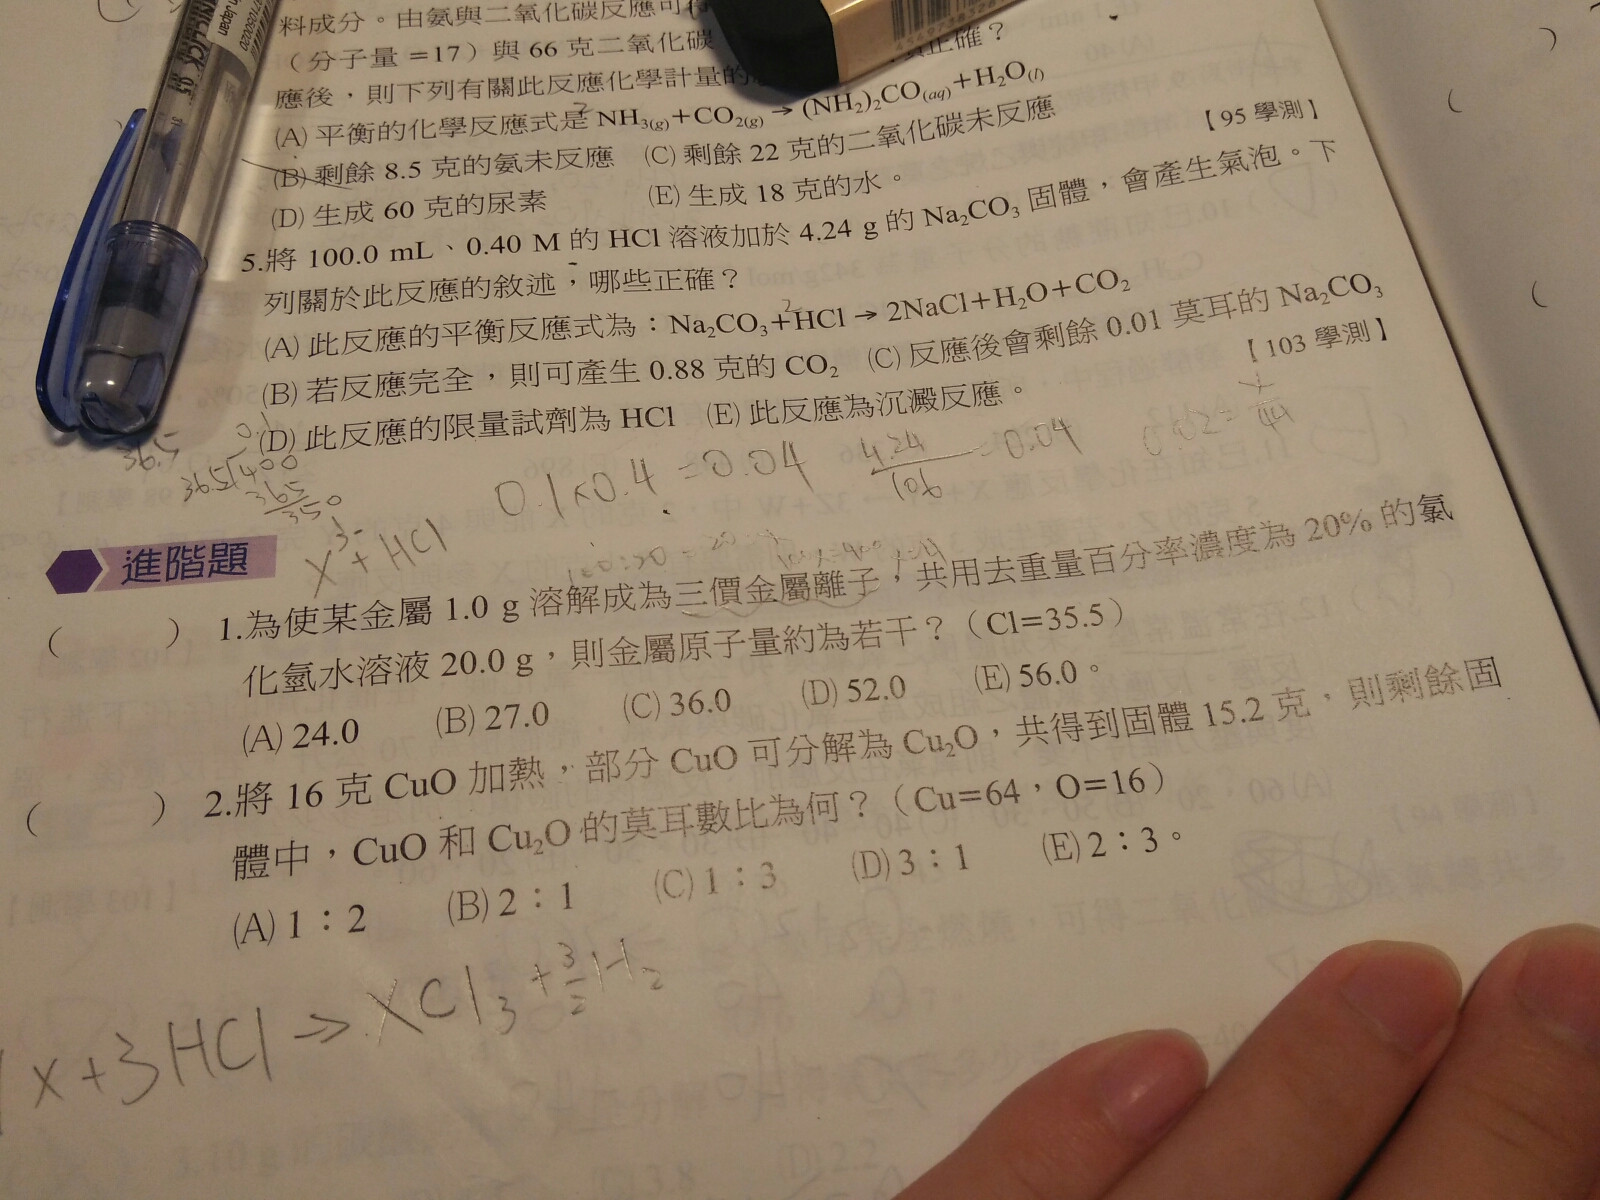 料成分。由氨與二氧化碳反應可得
（分子量=17）與 66 克二氧化碳 正確？
應後，則下列有關此反應化學計量的
(A) 平衡的化學反應式是 2NH₃(g)+CO₂(g) → (NH₂)₂CO(aq)+H₂O(l)
(B) 剩餘 8.5 克的氨未反應 (C) 剩餘 22 克的二氧化碳未反應
(D) 生成 60 克的尿素 (E) 生成 18 克的水。 【95 學測】
5.將 100.0 mL、0.40 M 的 HCl 溶液加於 4.24 g 的 Na₂CO₃ 固體，會產生氣泡。下
列關於此反應的敘述，哪些正確？
(A) 此反應的平衡反應式為：Na₂CO₃+2HCl → 2NaCl+H₂O+CO₂
(B) 若反應完全，則可產生 0.88 克的 CO₂ (C) 反應後會剩餘 0.01 莫耳的 Na₂CO₃
(D) 此反應的限量試劑為 HCl (E) 此反應為沉澱反應。 【103 學測】
36.5
0.1×0.4=0.04 4.24/106=0.04
進階題
( ) 1.為使某金屬 1.0 g 溶解成為三價金屬離子，共用去重量百分率濃度為 20% 的氯
化氫水溶液 20.0 g，則金屬原子量約為若干？（Cl=35.5）
(A) 24.0 (B) 27.0 (C) 36.0 (D) 52.0 (E) 56.0。
( ) 2.將 16 克 CuO 加熱，部分 CuO 可分解為 Cu₂O，共得到固體 15.2 克，則剩餘固
體中，CuO 和 Cu₂O 的莫耳數比為何？（Cu=64，O=16）
(A) 1：2 (B) 2：1 (C) 1：3 (D) 3：1 (E) 2：3。
x+3HCl → XCl₃+3/2H₂